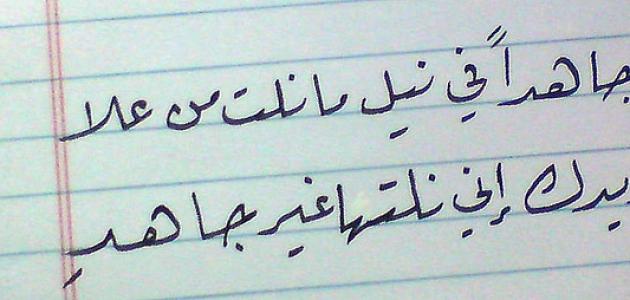 جاهداً في نيل ما نلت من علا
يدك إني نلتها غير جاهدِ